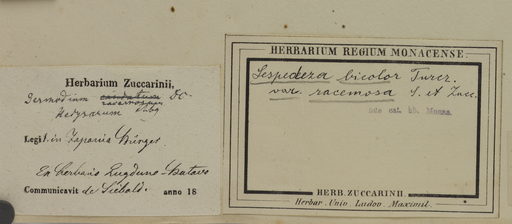 Herbarium Zuccarinii,
Desmodium caudatum DC
racemosum Thbg
Hedysarum
Legit. in Japonia Bürger.
Ex herbario Lugduno-Batavo
Communicavit de Siebold. anno 18
HERBARIUM REGIUM MONACENSE.
Lespedeza bicolor Turcz.
var. racemosa S. et Zucc.
HERB. ZUCCARINII.
Herbar. Univ. Ludov. Maximil.